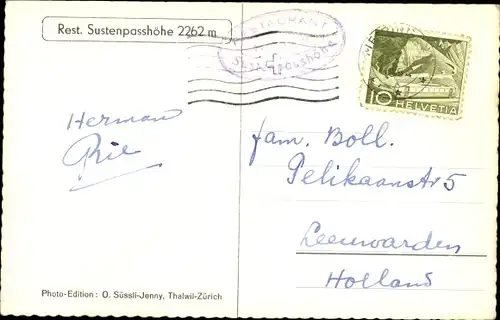 Rest. Sustenpasshöhe 2262 m
RESTAURANT
Sustenpasshöhe
10 HELVETIA
Herman
Rie
fam. Boll.
Pelikaanstr 5
Leeuwarden
Holland
Photo-Edition: O. Süssli-Jenny, Thalwil-Zürich